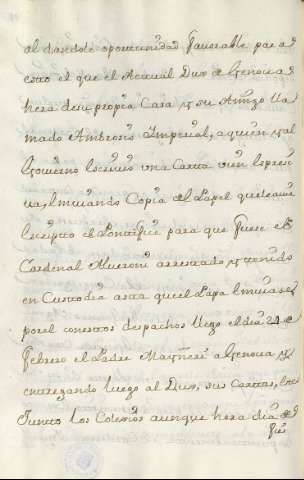 al dandole oportunidad favorable para
esto el que el Actual Dux de Genova
hera de su propia Casa y su Amigo lla
mado Ambrosio Imperial, a quien y al
Govierno escrivió una Carta bien expresi
va, y imviando Copia del Papel que le avia
escripto el Pontifice para que fuese el
Cardenal Alveroni arrestado y tenido
en Custodia asta que el Papa imviase
por el con estos despachos llego el dia 24 de
febrero el Padre a Genova y
entregando luego al Dux, sus Cartas, este
Junto los Colegios aunque hera dia de
fies